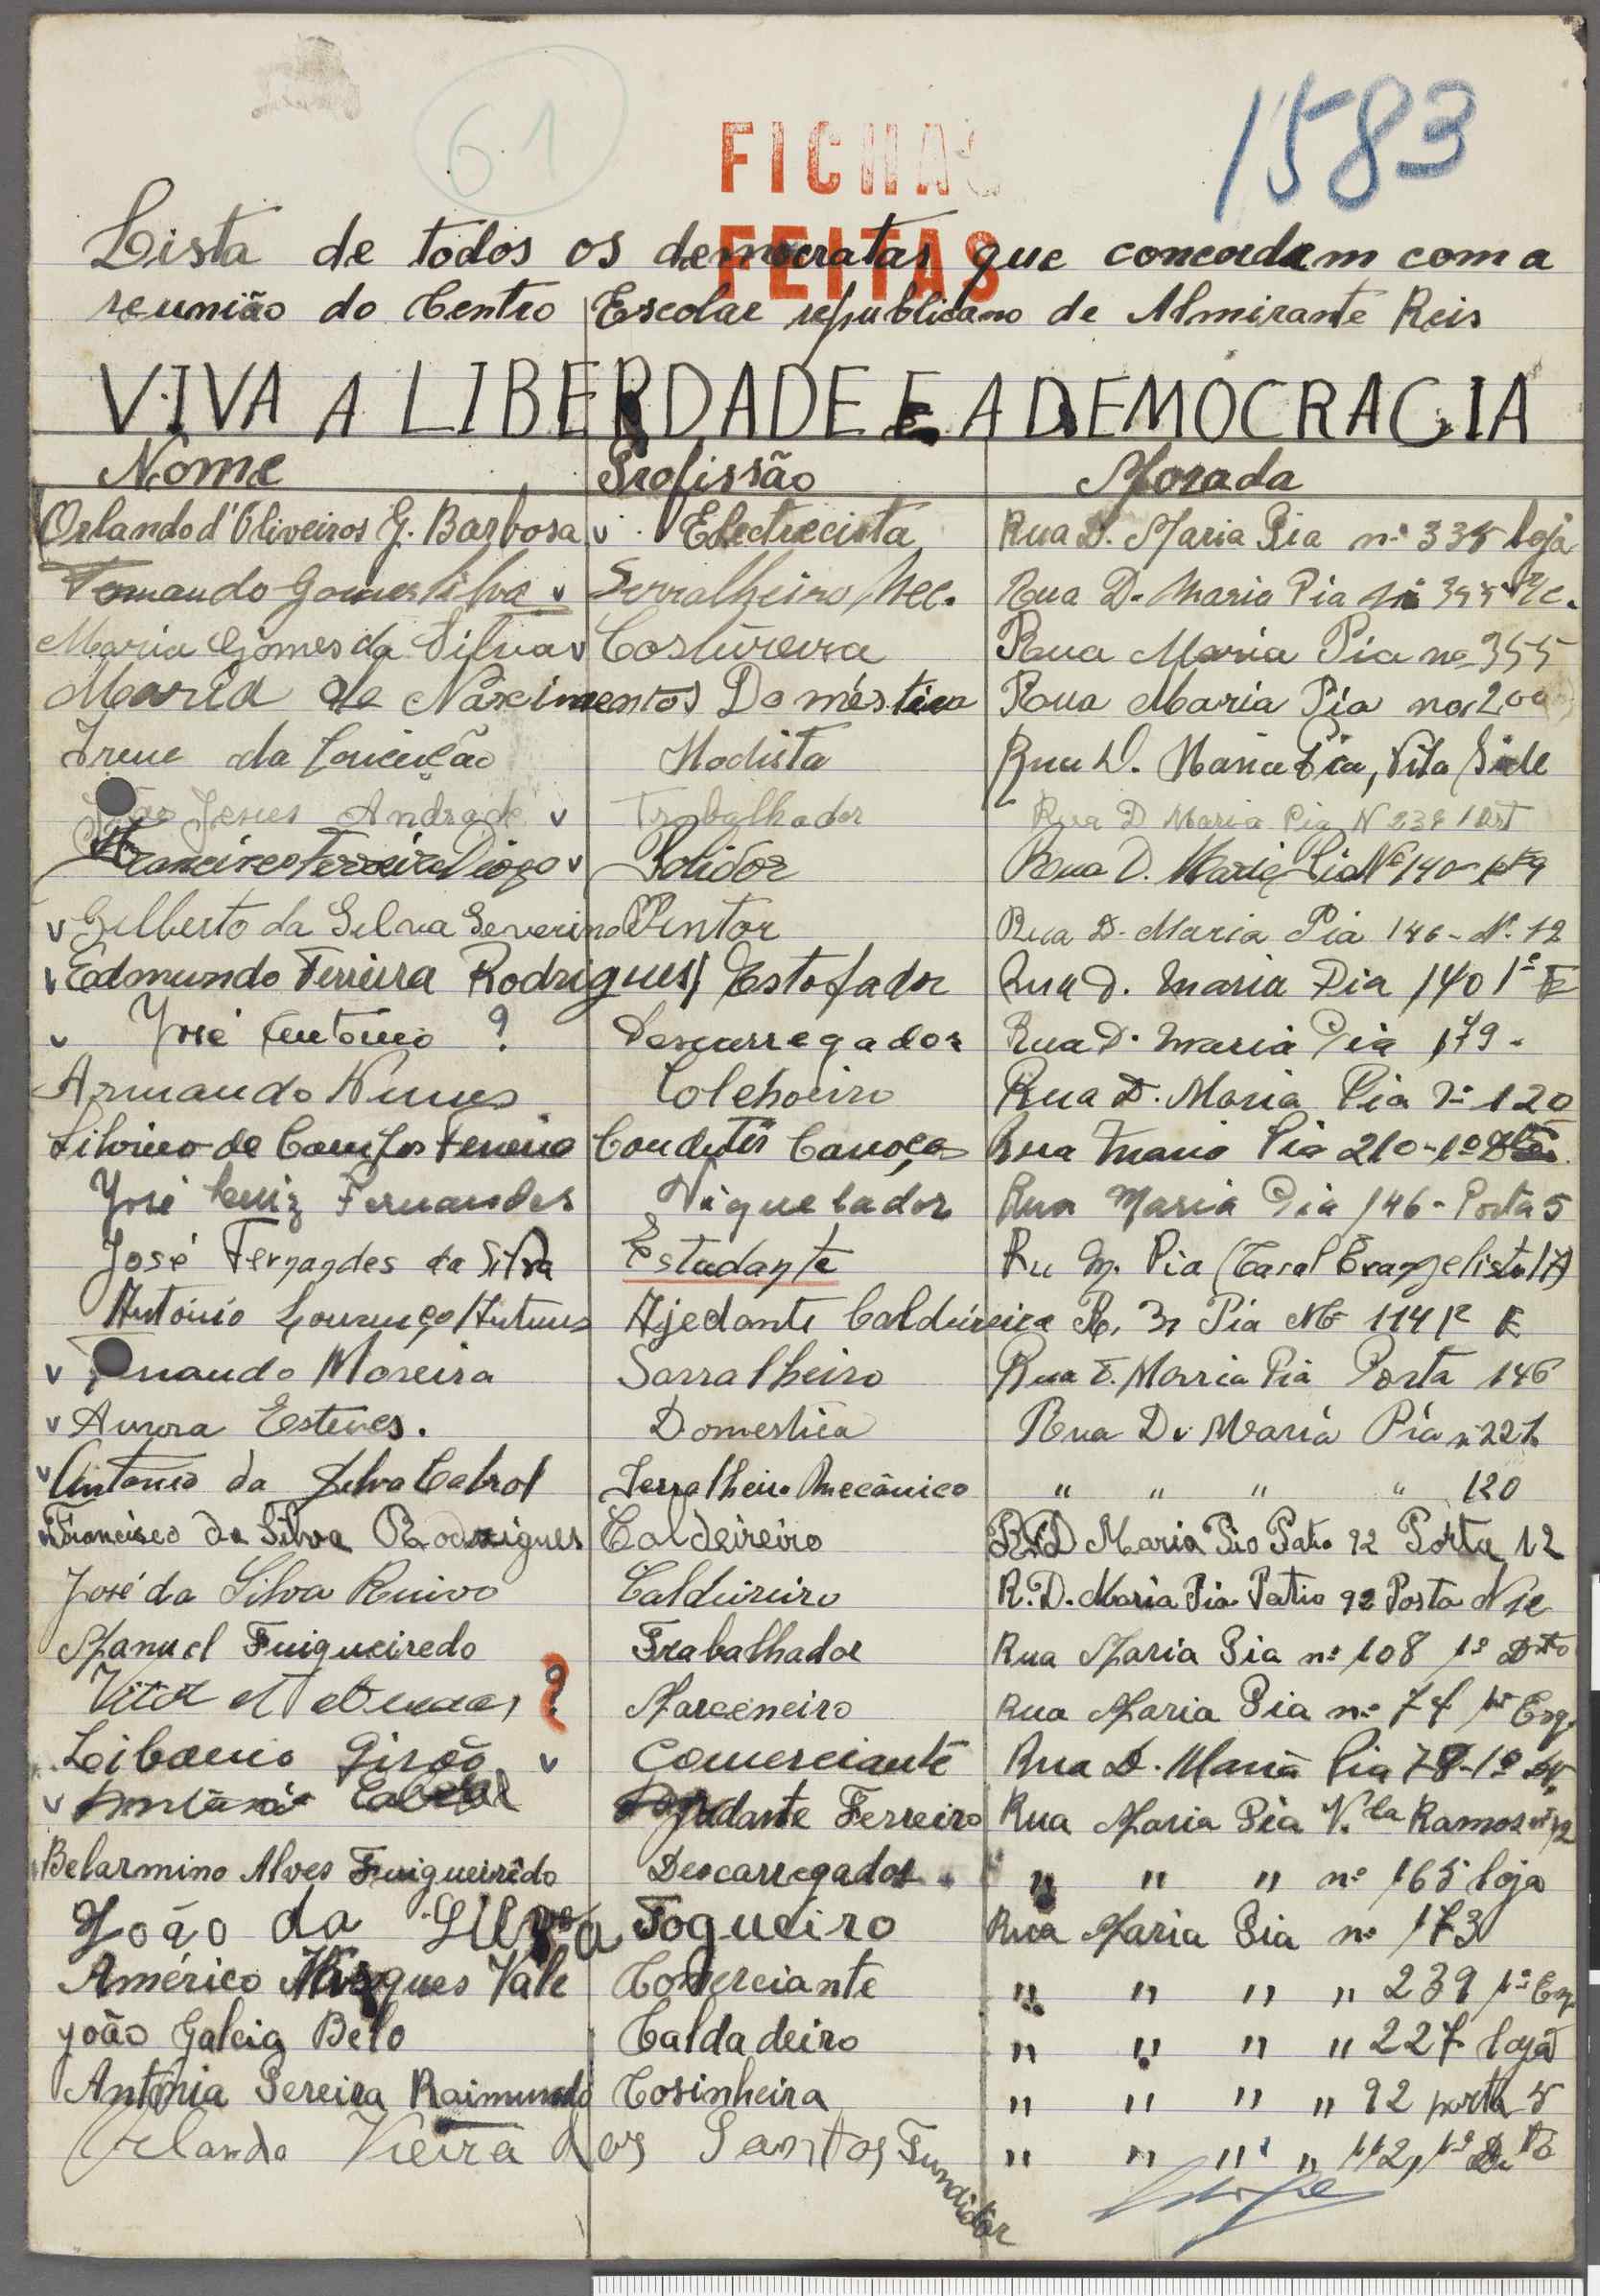 61
1583
FICHAS
FEITAS
Lista de todos os democratas que concordam com a
reunião do Centro Escolar republicano de Almirante Reis
VIVA A LIBERDADE E A DEMOCRACIA
Nome Profissão Morada
Orlando d'Oliveiros G. Barbosa v Electrecista Rua D. Maria Pia nº 335 loja
Fernando Gomes Silva v Serralheiro Mec. Rua D. Maria Pia nº 355 r/c.
Maria Gomes da Silva v Costureira Rua Maria Pia nº 355
Maria do Nascimento Doméstica Rua Maria Pia nº 200
Irene da Conceição Modista Rua D. Maria Pia, Vila
João Jesus Andrade v Trabalhador Rua D Maria Pia N 238 1 Drt
Francisco Ferreira Diogo v Polidor Rua D. Maria Pia Nº 140
v Gilberto da Silva Severino Pintor Rua D. Maria Pia 146 - Nº 12
v Edmundo Ferreira Rodrigues Estofador Rua D. Maria Pia 140 1º E
v José António ? Descarregador Rua D. Maria Pia 179 -
Armando Nunes Colchoeiro Rua D. Maria Pia nº 120
Silvino de Campos Ferreira Condutor Carroças Rua Maria Pia 210-1º
José Luiz Fernandes Niquelador Rua Maria Pia 146 - Porta 5
José Fernandes da Silva Estudante Ru M. Pia (Casal Evangelista 17)
António Lourenço Antunes Ajedante Caldeireiro R. M Pia Nº 114 1º E
v Fernando Moreira Sarralheiro Rua D. Maria Pia Porta 146
v Aurora Esteves. Domestica Rua D. Maria Pia nº 221
v António da Silva Cabral Serralheiro Mecânico " " " " 120
v Francisco da Silva Rodrigues Caldeireiro R. D Maria Pia Patio 92 Porta 12
José da Silva Ruivo Caldeireiro R. D. Maria Pia Patio 92 Porta
Manuel Fuigueiredo Trabalhador Rua Maria Pia nº 108 1º Dto
? Marceneiro Rua Maria Pia nº 74 1º Esq.
Libanio Girão v Comerciante Rua D. Maria Pia 78-1º
v Cabral Ajudante Ferreiro Rua Maria Pia V.la Ramos nº 12
Belarmino Alves Fuigueirêdo Descarregador " " " nº 165 loja
João da Silva Fogueiro Rua Maria Pia nº 173
Américo Marques Vale Comerciante " " " " 239 1º Esq.
João Galcia Belo Caldadeiro " " " " 227 loja
Antónia Pereira Raimundo Cosinheira " " " " 92 porta 5
Orlando Vieira dos Santos Fundidor " " " " 112, 1º Dto